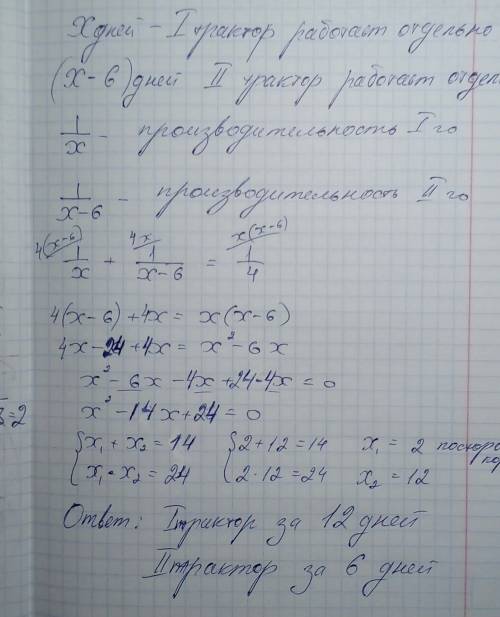 X дней - I трактор работает отдельно
(x-6) дней II трактор работает
1/x - производительность I го
1/(x-6) - производительность II го
4(x-6) 4x x(x-6)
1/x + 1/(x-6) = 1/4
4(x-6)+4x = x(x-6)
4x-24+4x = x²-6x
x²-6x-4x+24-4x=0
=2
x²-14x+24=0
{x₁+x₂=14 {2+12=14 x₁=2
{x₁·x₂=24 {2·12=24 x₂=12
Ответ: I трактор за 12 дней
II трактор за 6 дней